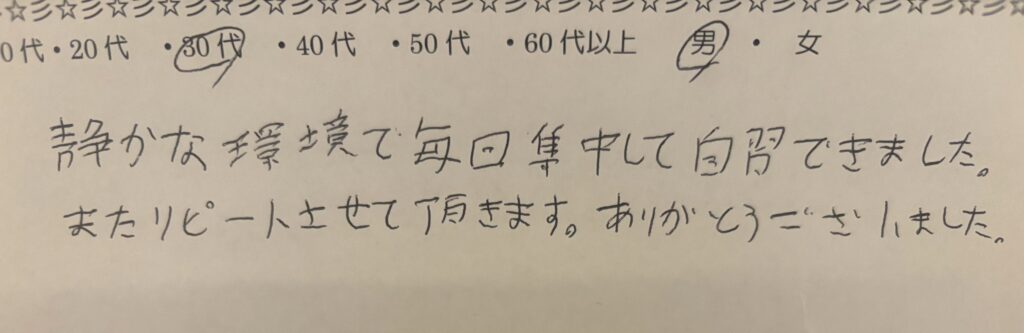 ☆彡☆彡☆彡☆彡☆彡☆彡☆彡☆彡☆彡☆彡☆彡☆彡☆彡☆彡☆彡☆彡☆彡☆彡☆彡☆彡☆彡☆彡
0代・20代 ・30代 ・40代 ・50代 ・60代以上 男 ・ 女
静かな環境で毎回集中して自習できました。
またリピートさせて頂きます。ありがとうございました。